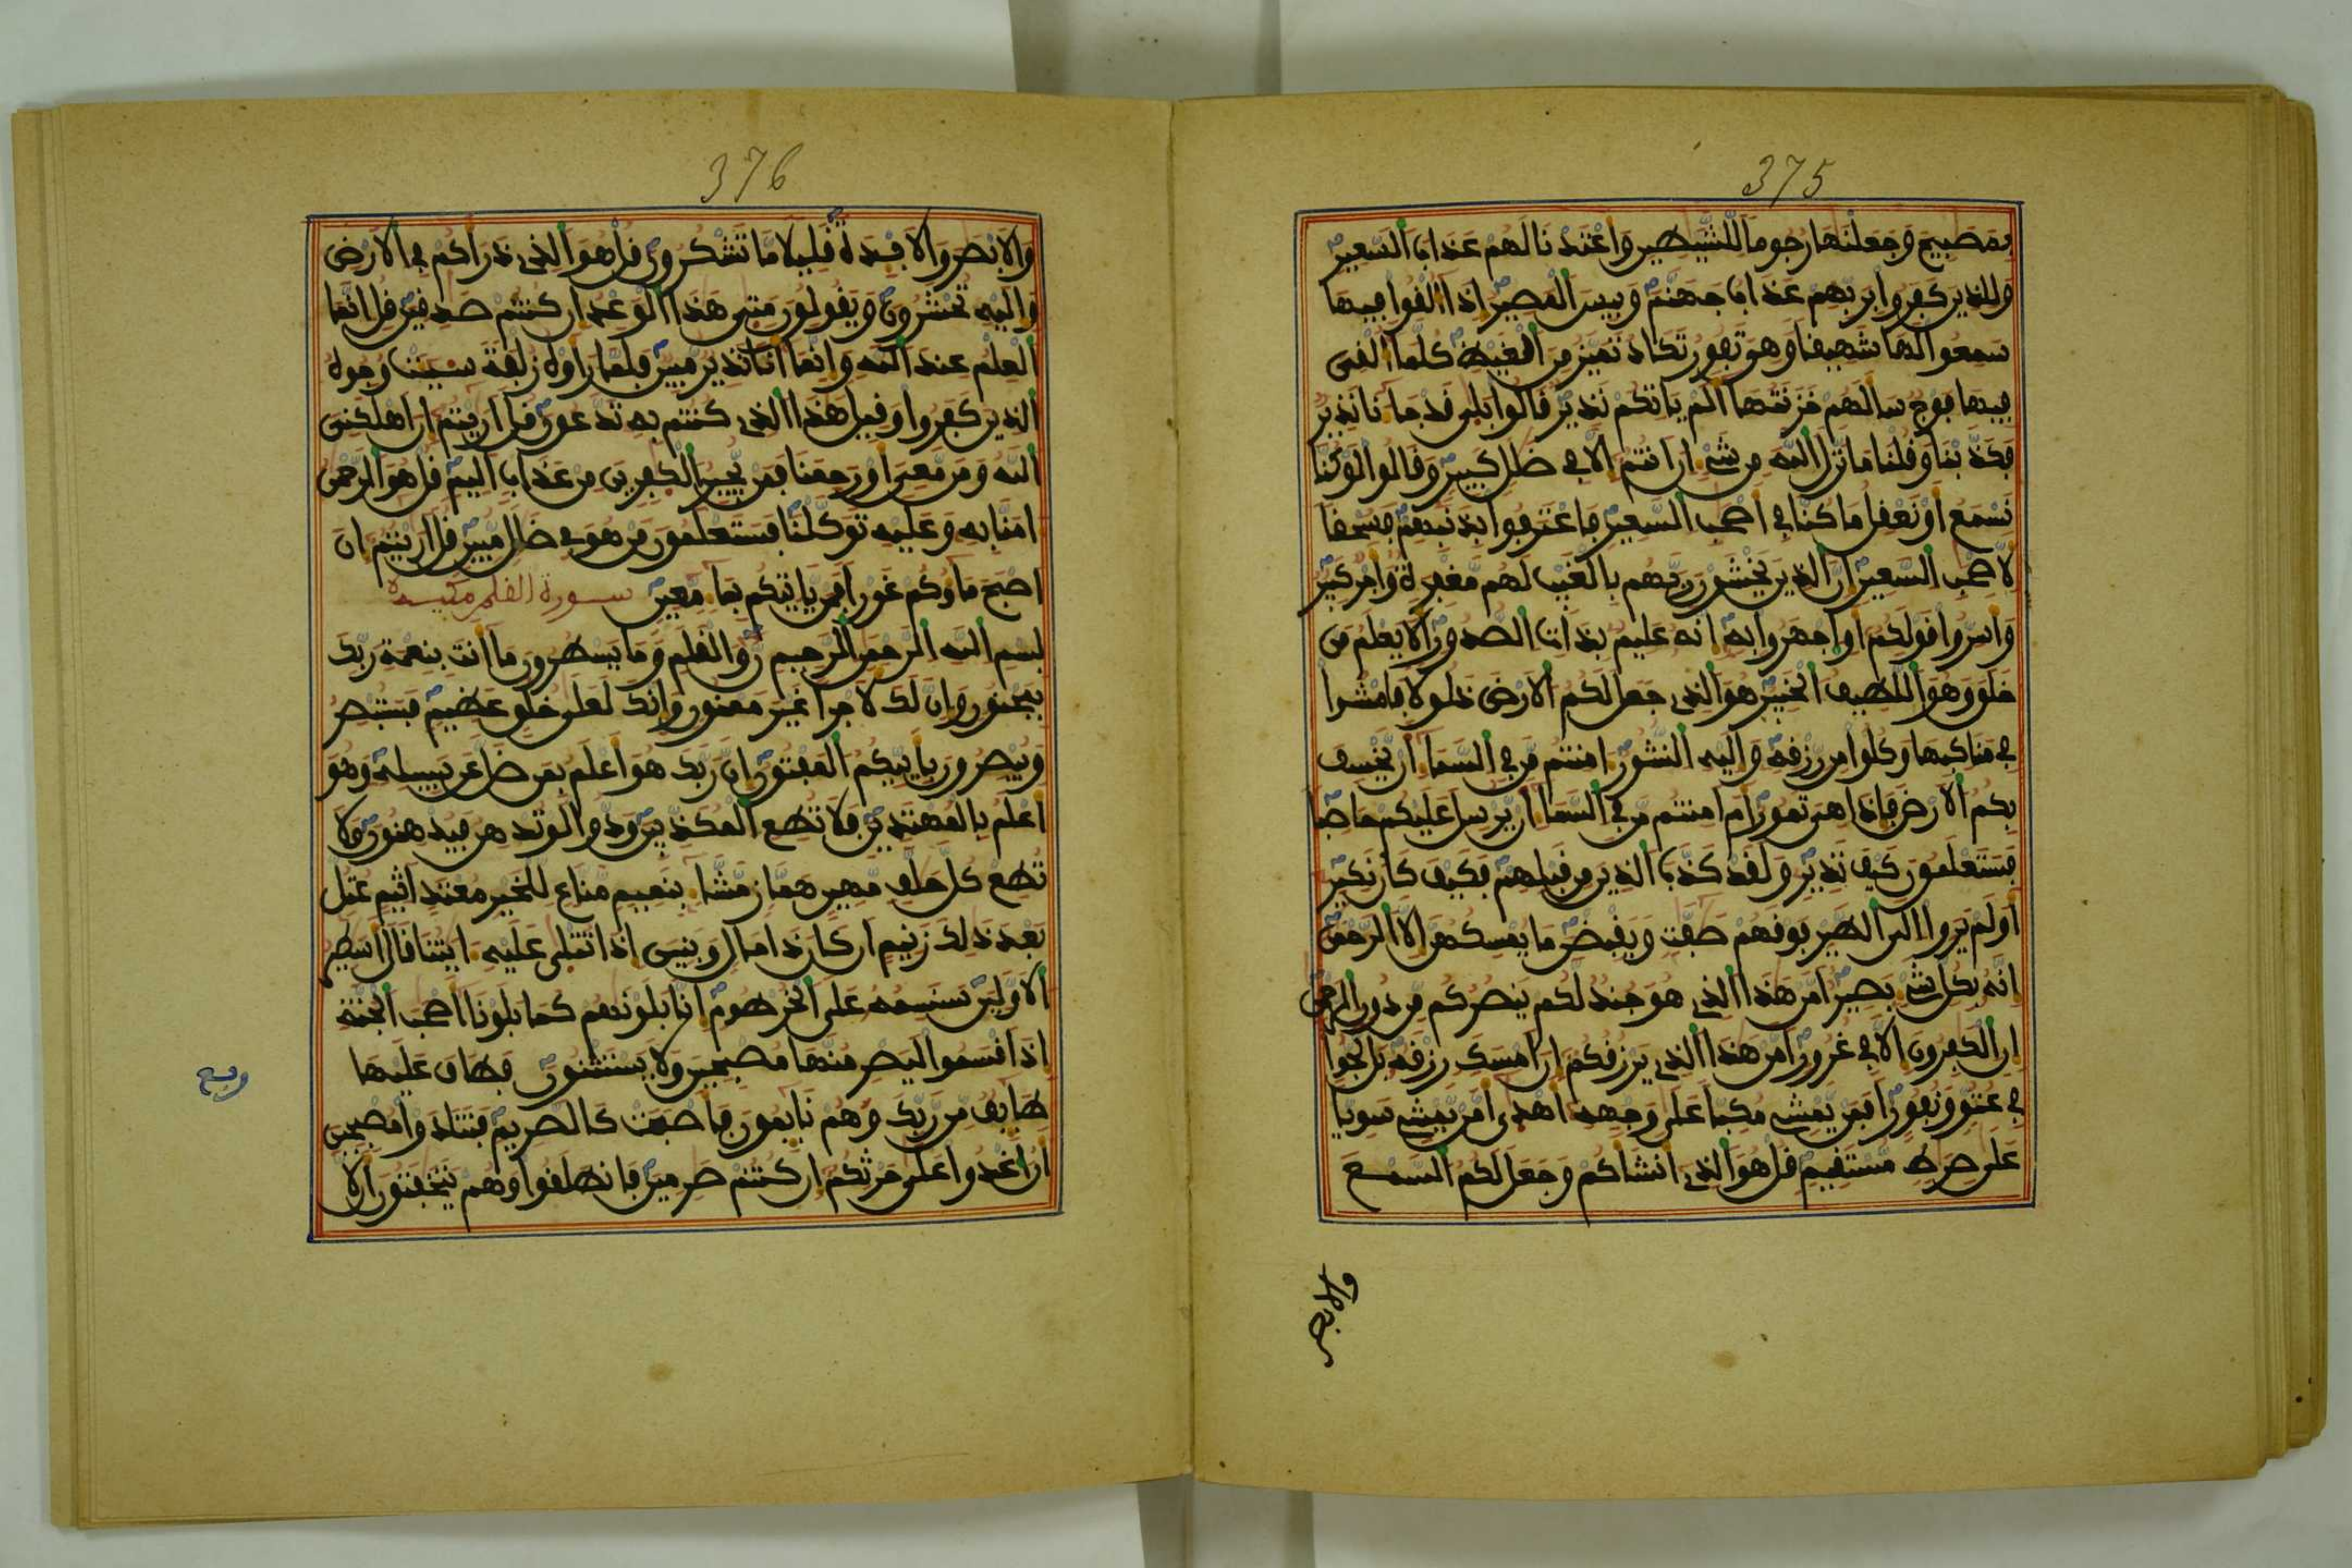 375
بمصبيح وجعلنها رجوما للشيطين واعتدنا لهم عذاب السعير
وللذين كفروا بربهم عذاب جهنم وبيس المصير اذا القوا فيها
سمعوا لها شهيقا وهي تفور تكاد تميز من الغيظ كلما القى
فيها فوج سالهم خزنتها الم ياتكم نذير قالوا بلى قد جانا نذير
فكذبنا وقلنا ما نزل الله من شي ان انتم الا في ضلل كبير وقالوا لو كنا
نسمع او نعقل ما كنا في اصحب السعير فاعترفوا بذنبهم فسحقا
لاصحب السعير ان الذين يخشون ربهم بالغيب لهم مغفرة واجر كبير
واسروا قولكم او اجهروا به انه عليم بذات الصدور الا يعلم من
خلق وهو اللطيف الخبير هو الذي جعل لكم الارض ذلولا فامشوا
في مناكبها وكلوا من رزقه واليه النشور امنتم من في السما ان يخسف
بكم الارض فاذا هي تمور ام امنتم من في السما ان يرسل عليكم حاصبا
فستعلمون كيف نذير ولقد كذب الذين من قبلهم فكيف كان نكير
اولم يروا الى الطير فوقهم صفت ويقبضن ما يمسكهن الا الرحمن
انه بكل شي بصير امن هذا الذي هو جند لكم ينصركم من دون الرحمن
ان الكفرون الا في غرور امن هذا الذي يرزقكم ان امسك رزقه بل لجوا
في عتو ونفور افمن يمشي مكبا على وجهه اهدى امن يمشي سويا
على صرط مستقيم قل هو الذي انشاكم وجعل لكم السمع
376
والابصر والافيدة قليلا ما تشكرون قل هو الذي ذراكم في الارض
واليه تحشرون ويقولون متى هذا الوعد ان كنتم صدقين قل انما
العلم عند الله وانما انا نذير مبين فلما راوه زلفة سيت وجوه
الذين كفروا وقيل هذا الذي كنتم به تدعون قل اريتم ان اهلكنى
الله ومن معي او رحمنا فمن يجير الكفرين من عذاب اليم قل هو الرحمن
امنا به وعليه توكلنا فستعلمون من هو في ضلل مبين قل اريتم ان
اصبح ماوكم غورا فمن ياتيكم بما معين سورة القلم مكية
بسم الله الرحمن الرحيم ن والقلم وما يسطرون ما انت بنعمة ربك
بمجنون وان لك لاجرا غير ممنون وانك لعلى خلق عظيم فستبصر
ويبصرون باييكم المفتون ان ربك هو اعلم بمن ضل عن سبيله وهو
اعلم بالمهتدين فلا تطع المكذبين ودوا لو تدهن فيدهنون ولا
تطع كل حلف مهين هماز مشا بنميم مناع للخير معتد اثيم عتل
بعد ذلك زنيم ان كان ذا مال وبنين اذا تتلى عليه ايتنا قال اسطير
الاولين سنسمه على الخرطوم انا بلونهم كما بلونا اصحب الجنة
اذ اقسموا ليصرمنها مصبحين ولا يستثنون فطاف عليها
طايف من ربك وهم نايمون فاصبحت كالصريم فتنادوا مصبحين
ان اغدوا على حرثكم ان كنتم صرمين فانطلقوا وهم يتخفتون ان لا
ربع